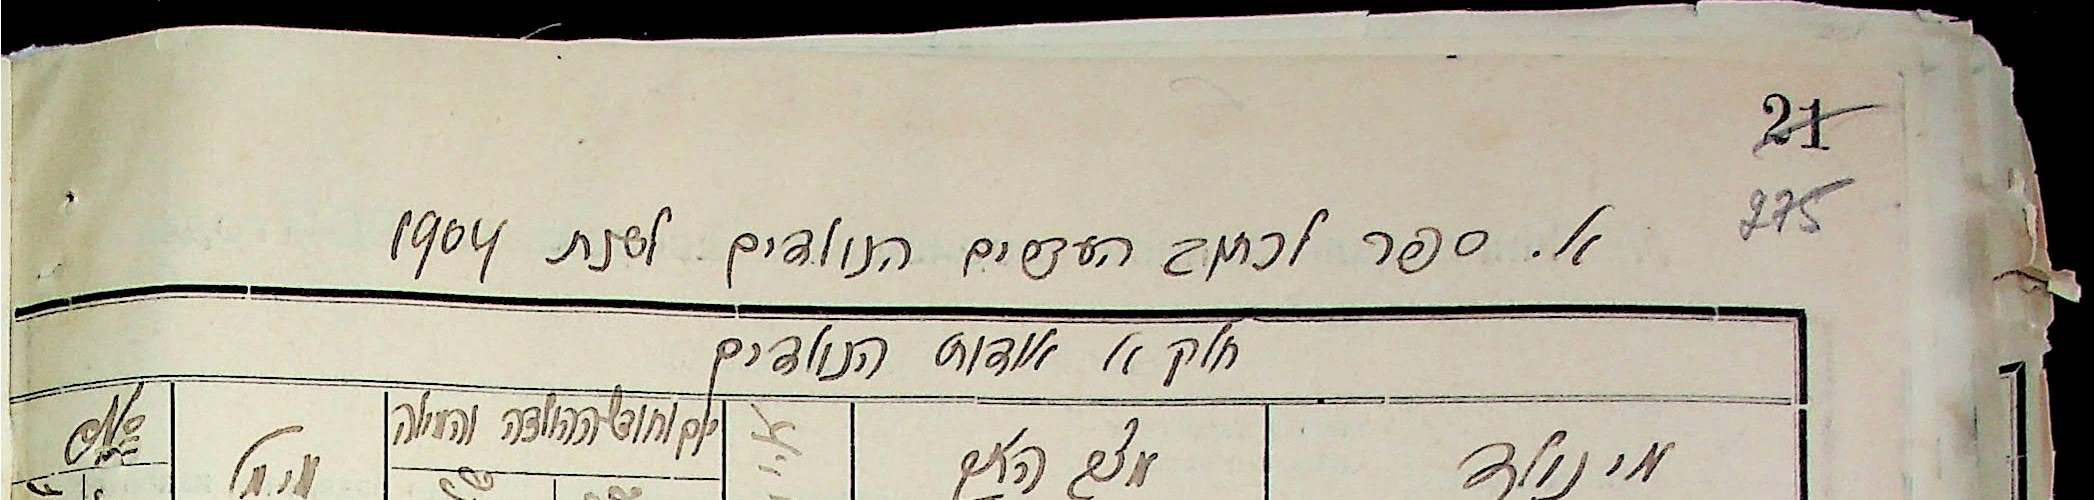 21
275
א. ספר לכתוב העצמים הנולדים לשנת 1904
חלק א אודות הנולדים
מי נולד
מצב האם
יום וחודש ההולדה והמילה
מי מל